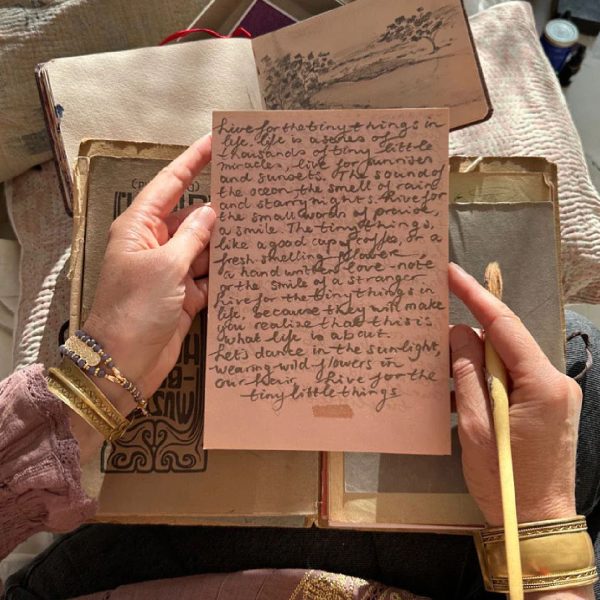 Live for the tiny things in
life. life is a series of
thousands of tiny little
miracles, live for sunrises
and sunsets. The sound of
the ocean, the smell of rain
and starry nights. Live for
the small words of praise,
a smile. The tiny things,
like a good cup of coffee, or a
fresh smelling flower,
a handwritten love-note
or the smile of a stranger
Live for the tiny things in
life, because they will make
you realize that this is
what life is about.
Let's dance in the sunlight,
wearing wild flowers in
our hair. Live for the
tiny little things